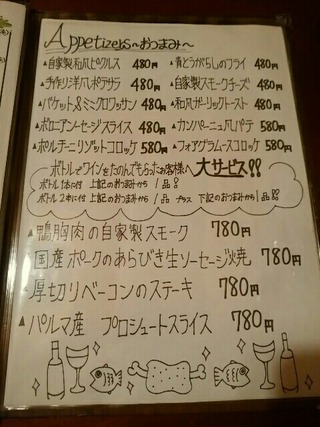 Appetizers〜おつまみ〜
▲自家製和風ピクルス 480円 ▲青とうがらしのフライ 480円
▲手作り洋風ポテサラ 480円 ▲自家製スモークチーズ 480円
▲バケット&ミニクロワッサン 480円 ▲和風ガーリックトースト 480円
▲ボロニアンソーセージスライス 480円 ▲カンパーニュ風パテ 580円
▲ポルチーニリゾットコロッケ 580円 ▲フォアグラムースコロッケ 580円
ボトルでワインをたのんでもらったお客様へ 大サービス!!
ボトル1本に付 上記のおつまみから1品!!
ボトル2本に付 上記のおつまみから1品 プラス 下記のおつまみから1品!!
▲鴨胸肉の自家製スモーク 780円
▲国産ポークのあらびき生ソーセージ焼 780円
▲厚切りベーコンのステーキ 780円
▲パルマ産 プロシュートスライス 780円